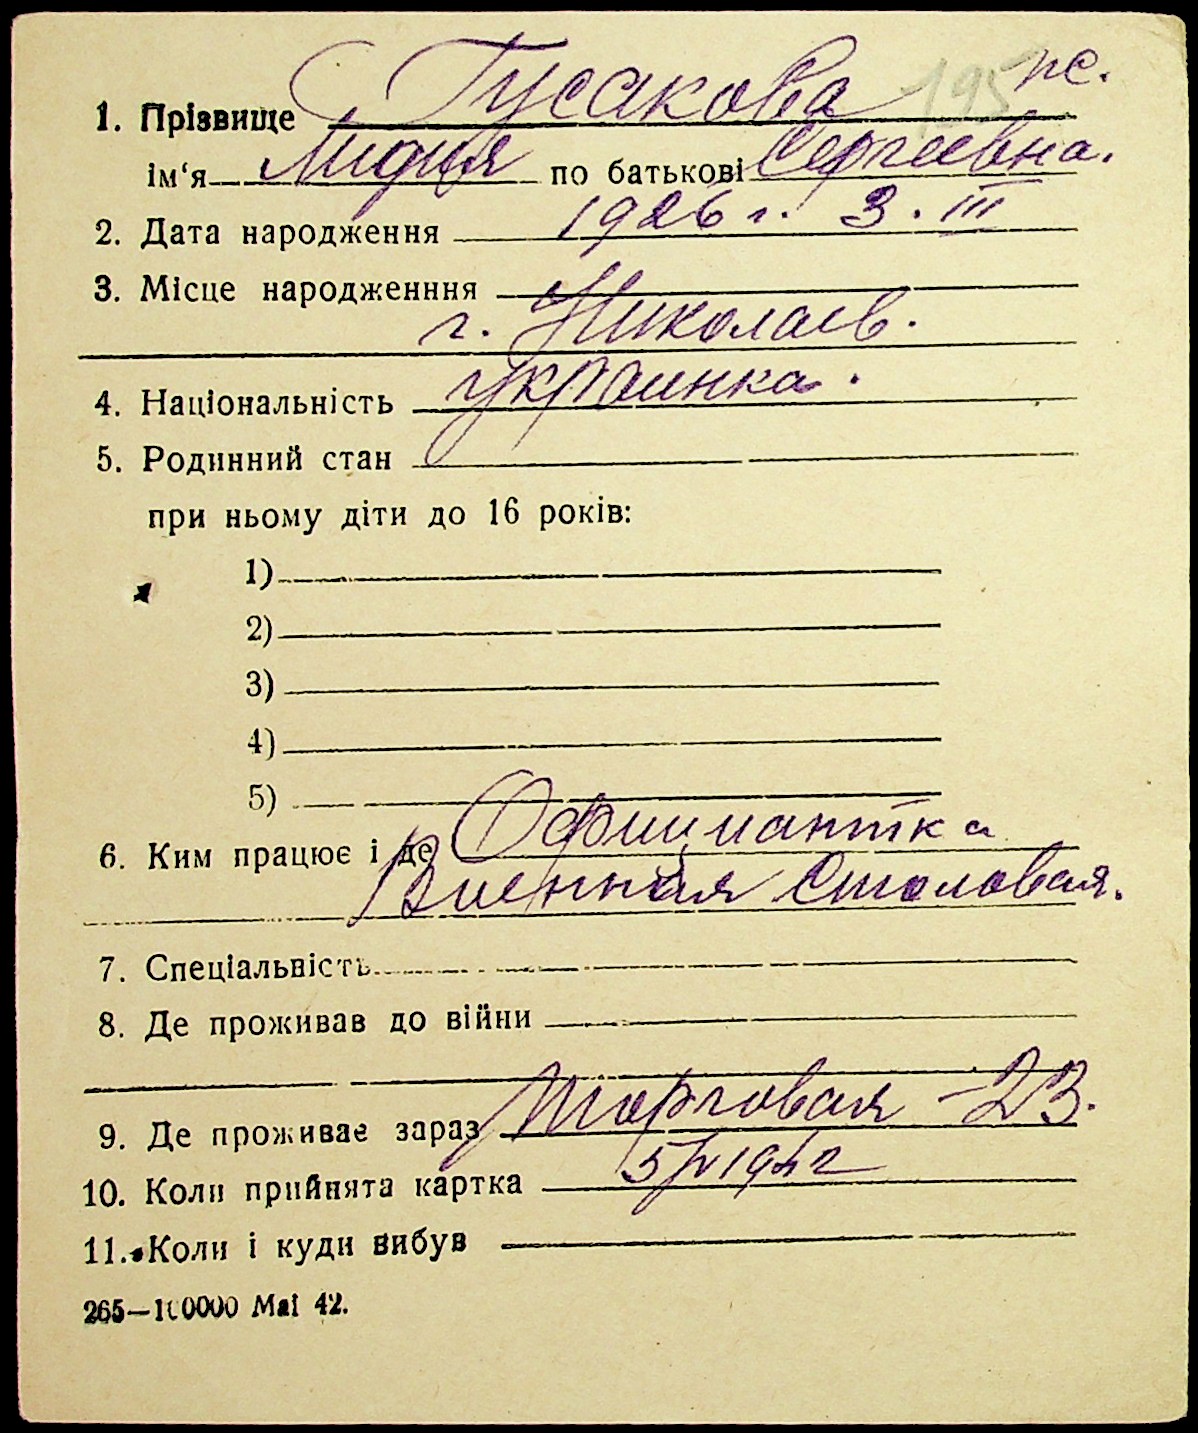 пс.
195
1. Прізвище Гусакова
ім‘я Лидия по батькові Сергеевна.
2. Дата народження 1926 г. 3. III
3. Місце народженння
г. Николаев.
4. Національність украинка.
5. Родинний стан
при ньому діти до 16 років:
1)
2)
3)
4)
5)
6. Ким працює і де Официантка
Военная Столовая.
7. Спеціальність
8. Де проживав до війни
9. Де проживає зараз Торговая - 23.
10. Коли прийнята картка 5/V 1942
11. Коли і куди вибув
265—100000 Маі 42.